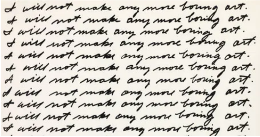 I will not make any more boring art.
I will not make any more boring art.
I will not make any more boring art.
I will not make any more boring art.
I will not make any more boring art.
I will not make any more boring art.
I will not make any more boring art.
I will not make any more boring art.
I will not make any more boring art.
I will not make any more boring art.
I will not make any more boring art.